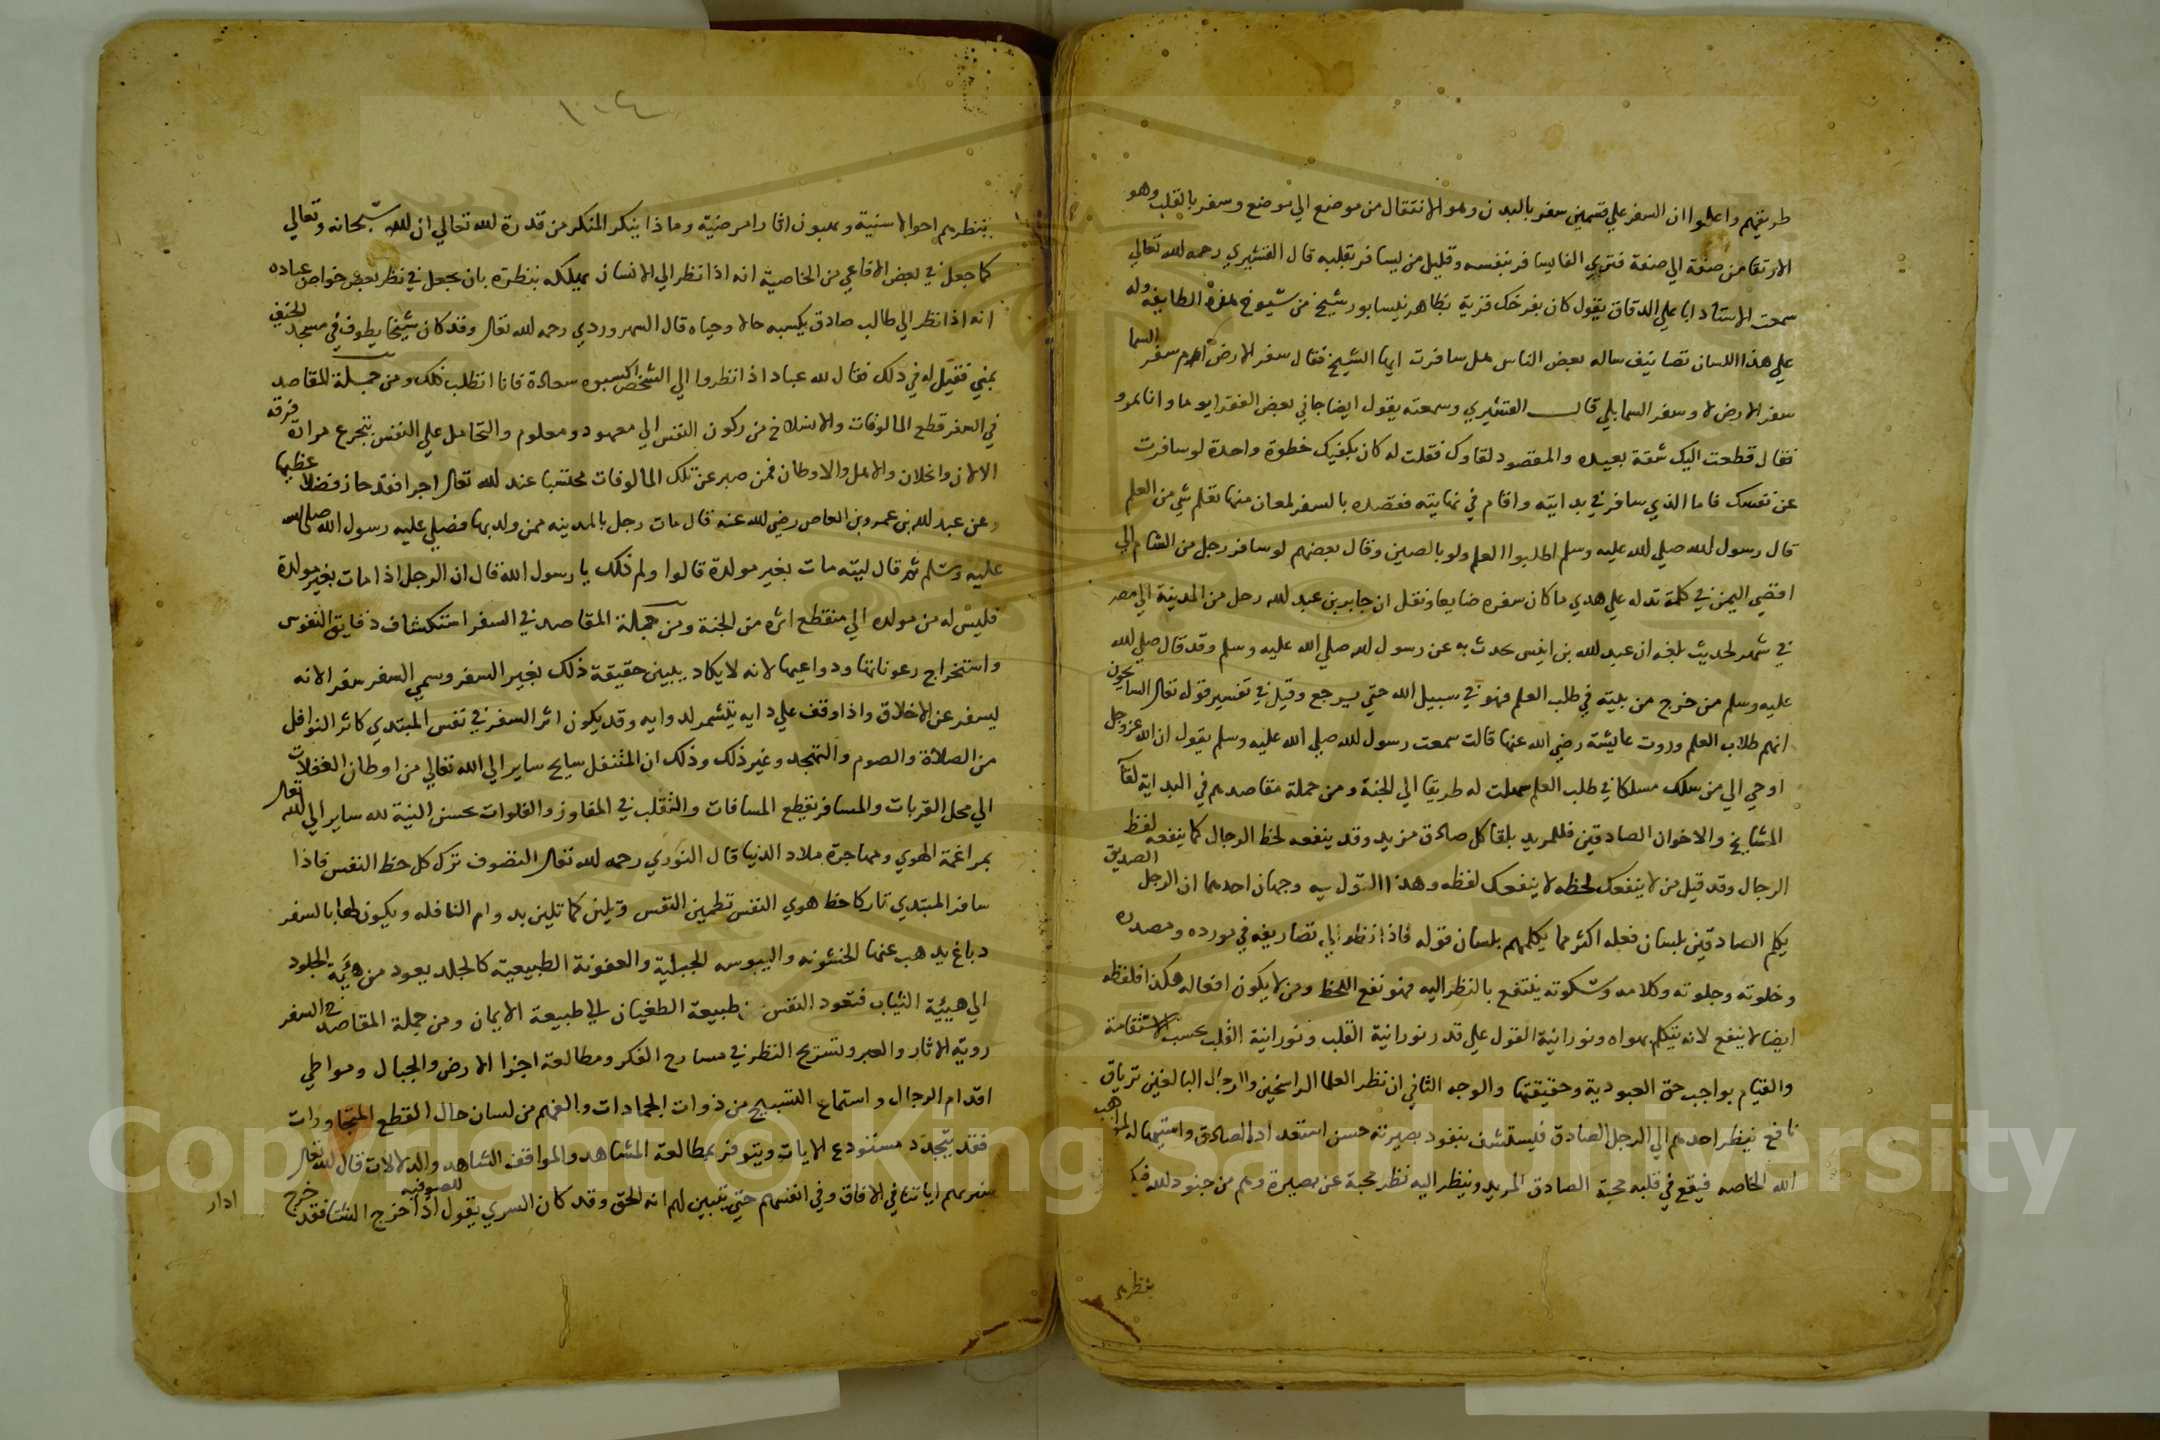 طريقهم واعلموا ان السفر علي قسمين سفر بالبدن وهو الانتقال من موضع الي موضع وسفر بالقلب وهو
الارتقا من صفة الي صفة فتري الفا يسافر بنفسه وقليل من يسافر بقلبه قال القشيري رحمه الله تعالي
سمعت الاستاذ ابا علي الدقاق يقول كان بفرخك قرية بظاهر نيسابور شيخ من شيوخ هذه الطايفه وله
علي هذا اللسان تصانيف ساله بعض الناس هل سافرت ايها الشيخ فقال سفر الارض ام سفر السما
سفر الارض لا وسفر السما بلي قال القشيري وسمعته يقول ايضا جاني بعض الفقرا يوما وانا بمرو
فقال قطعت اليك شقة بعيده والمقصود لقاوك فقلت له كان يكفيك خطوة واحدة لو سافرت
عن نفسك فاما الذي سافر في بدايته واقام في نهايته فقصده بالسفر لمعان منها تعلم شي من العلم
قال رسول الله صلي الله عليه وسلم اطلبوا العلم ولو بالصين وقال بعضهم لو سافر رجل من الشام الي
اقصي اليمن في كلمة تدله علي هدي ما كان سفره ضايعا ونقل ان جابر بن عبد الله رحل من المدينة الي مصر
في شهر لحديث بلغه ان عبد الله بن انيس يحدث به عن رسول الله صلي الله عليه وسلم وقد قال صلي الله
عليه وسلم من خرج من بيته في طلب العلم فهو في سبيل الله حتي يرجع وقيل في تفسير قوله تعالى السايحون
انهم طلاب العلم وروت عايشة رضي الله عنها قالت سمعت رسول الله صلي الله عليه وسلم يقول ان الله عز وجل
اوحي الي من سلك مسلكا في طلب العلم سهلت له طريقا الي الجنة ومن جملة مقاصدهم في البداية لقآ
المشايخ والاخوان الصادقين فللمريد بلقا كل صادق مزيد وقد ينفعه لحظ الرجال كما ينفعه لفظ
الرجال وقد قيل من لا ينفعك لحظه لا ينفعك لفظه وهذا القول فيه وجهان احدهما ان الرجل الصديق
يكلم الصادقين بلسان فعله اكثر مما يكلمهم بلسان قوله فاذا نظر الي تصاريفه في مورده ومصدره
وخلوته وجلوته وكلامه وسكوته ينتفع بالنظر اليه فهو نفع اللحظ ومن لا يكون افعاله هكذا فلفظه
ايضا لا ينفع لانه يتكلم بهواه ونورانية القول علي قدر نورانية القلب ونورانية القلب بحسب الاستقامة
والقيام بواجب حق العبودية وحقيقتها والوجه الثاني ان نظر العلما الراسخين والرجال البالغين ترياق
نافع ينظر احدهم الي الرجل الصادق فيستشف بنفود بصيرته حسن استعداد الصادق واستيهاله لمواهب
الله الخاصه فيقع في قلبه محبة الصادق المريد وينظر اليه نظر محبة عن بصيرة وهم من جنود الله
بنظرهم
١٠٤
بنظرهم احوالا سنية ويهبون اثارا مرضية وماذا ينكر المنكر من قدرة الله تعالي ان الله سبحانه وتعالي
كما جعل في بعض الافاعي من الخاصية انه اذا نظر الي الانسان يهلكه بنظرة بان يجعل في نظر بعض خواص عباده
انه اذا نظر الي طالب صادق يكسبه حالا وحياه قال السهروردي رحمه الله تعالى وقد كان شيخنا يطوف في مسجد الخيف
بمني فقيل له في ذلك فقال لله عباد اذا نظروا الي الشخص اكسبوه سعادة فانا اتطلب ذلك ومن جملة المقاصد
في السفر قطع المالوفات والانسلاخ من ركون النفس الي معهود ومعلوم والتحامل علي النفس بتجرع مرارة فرقة
الالاف والخلان والاهل والاوطان فمن صبر عن تلك المالوفات محتسبا عند الله تعالى اجرا فقد حاز فضلا عظيما
وعن عبد الله بن عمرو بن العاص رضي الله عنه قال مات رجل بالمدينه ممن ولد بها فصلي عليه رسول الله صلى الله
عليه وسلم ثم قال ليته مات بغير مولده قالوا ولم ذلك يا رسول الله قال ان الرجل اذا مات بغير مولده
قيس له من مولده الي منقطع اثره من الجنة ومن جملة المقاصد في السفر استكشاف دقايق النفوس
واستخراج رعوناتها ودواعيها لانه لا يكاد يبين حقيقة ذلك بغير السفر وسمي السفر سفرا لانه
يسفر عن الاخلاق واذا وقف علي دايه يتشمر لدوايه وقد يكون اثر السفر في نفس المبتدي كاثر النوافل
من الصلاة والصوم والتهجد وغير ذلك وذلك ان المتنفل سايح ساير الي الله تعالي من اوطان الغفلات
الي محل القربات والمسافر يقطع المسافات والتقلب في المفاوز والفلوات بحسن النية لله ساير الي الله تعالى
بمراغمة الهوي ومهاجرة ملاد الدنيا قال النوري رحمه الله تعالى التصوف ترك كل حظ النفس فاذا
سافر المبتدي تاركا حظ هوي النفس تطمين النفس وتلين كما تلين بدوام النافله ويكون لها بالسفر
دباغ يدهب عنها الخشونه واليبوسه الجبلية والعفونة الطبيعية كالجلد يعود من هيئة الجلود
الي هيئة الثياب فتعود النفس من طبيعة الطغيان الي طبيعة الايمان ومن جملة المقاصد في السفر
روية الاثار والعبر وتسريح النظر في مسارح الفكر ومطالعة اجزا الارض والجبال ومواطي
اقدام الرجال واستماع التسبيح من ذوات الجمادات والفهم من لسان حال القطع المتجاورات
فقد يتجدد مستودع الايات ويتوفر بمطالعة المشاهد والمواقف الشاهد والدلالات قال الله تعالى
سنريهم اياتنا في الافاق وفي انفسهم حتي يتبين لهم انه الحق وقد كان السري يقول للصوفيه اذا خرج الشتا فقد خرج
ادار
Copyright © King Saud University